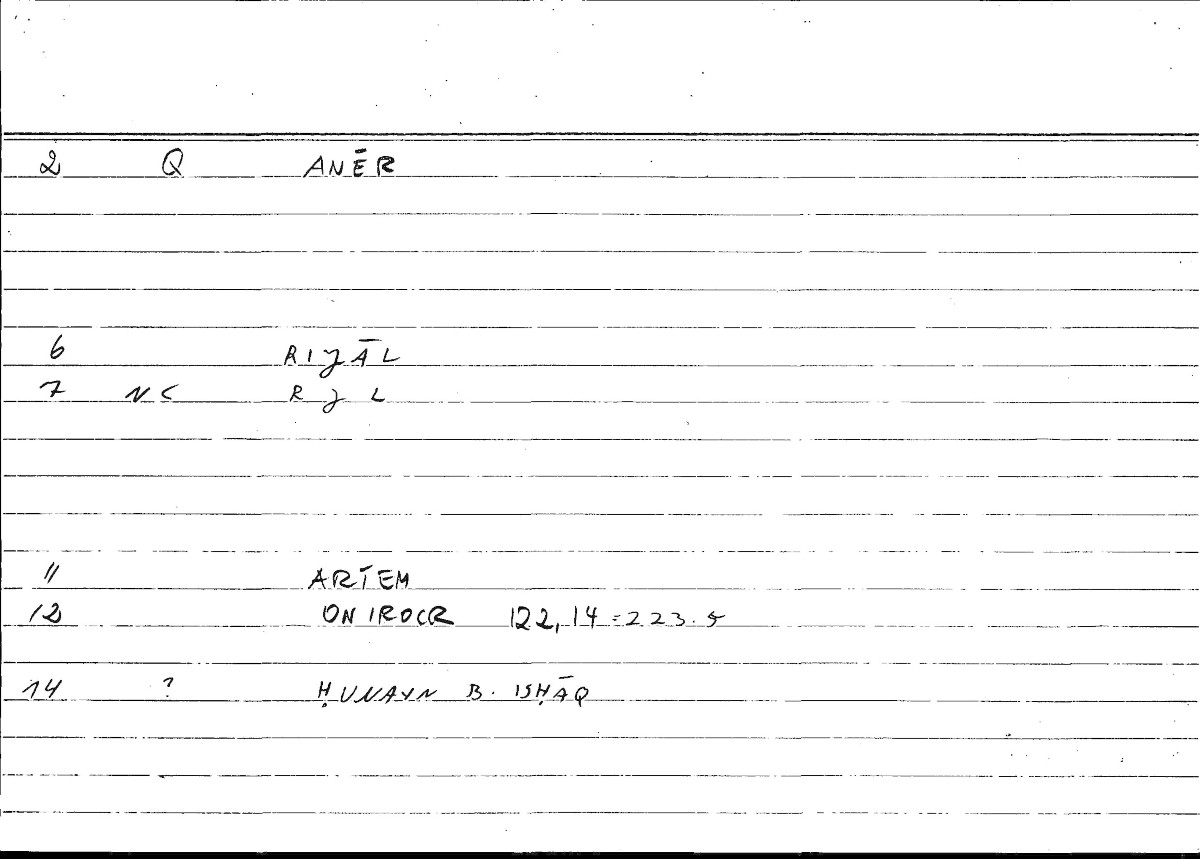 2 Q ANĒR
6 RIJĀL
7 NC RJL
11 ARTEM
12 ONIROCR 122,14 = 223.5
14 ? ḤUNAYN B. ISḤĀQ